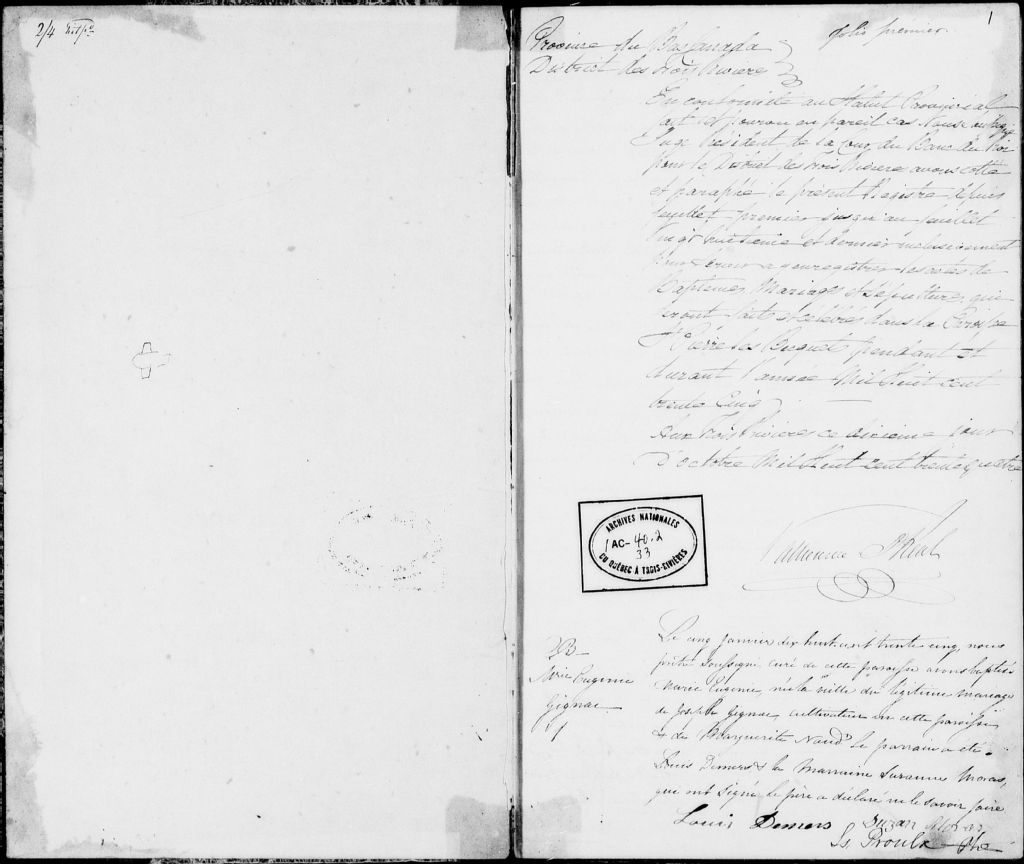 2/4
1
folio premier
Province du Bas Canada
District des trois Rivieres
En conformité au Statut Provincial
fait et pourvu en pareil cas Nous
Juge Président de la Cour du Banc du Roi
pour le District des trois Rivieres avons cotté
et paraphé le present Registre depuis
feuillet premier jusqu'au feuillet
Vingt huitieme et dernier inclusivement
pour servir a enregistrer les actes de
Baptêmes, Mariages et Sépultures qui
seront faits et célébrés dans la Paroisse
St Pierre les Becquets pendant et
durant l'année Mil Huit cent
trente Cinq
Aux Trois Rivieres ce dixieme jour
d'octobre Mil Huit cent trente quatre
ARCHIVES NATIONALES
1 AC- 40.2
33
DU QUÉBEC À TROIS-RIVIÈRES
Vallieres de St Réal
Le cinq janvier dix huit cent trente cinq, nous
prêtre soussigné, curé de cette paroisse avons baptisé
Marie Eugenie, née la veille du légitime mariage
de Joseph Gignac, cultivateur en cette paroisse
& de Marguerite Naud. Le parrain a été
Louis Demers & la Marraine Suzanne Moras,
qui ont signé, le père a déclaré ne le savoir faire
B
Marie Eugenie
Gignac
Louis Demers
Suzan
Ls. Proulx Ptre